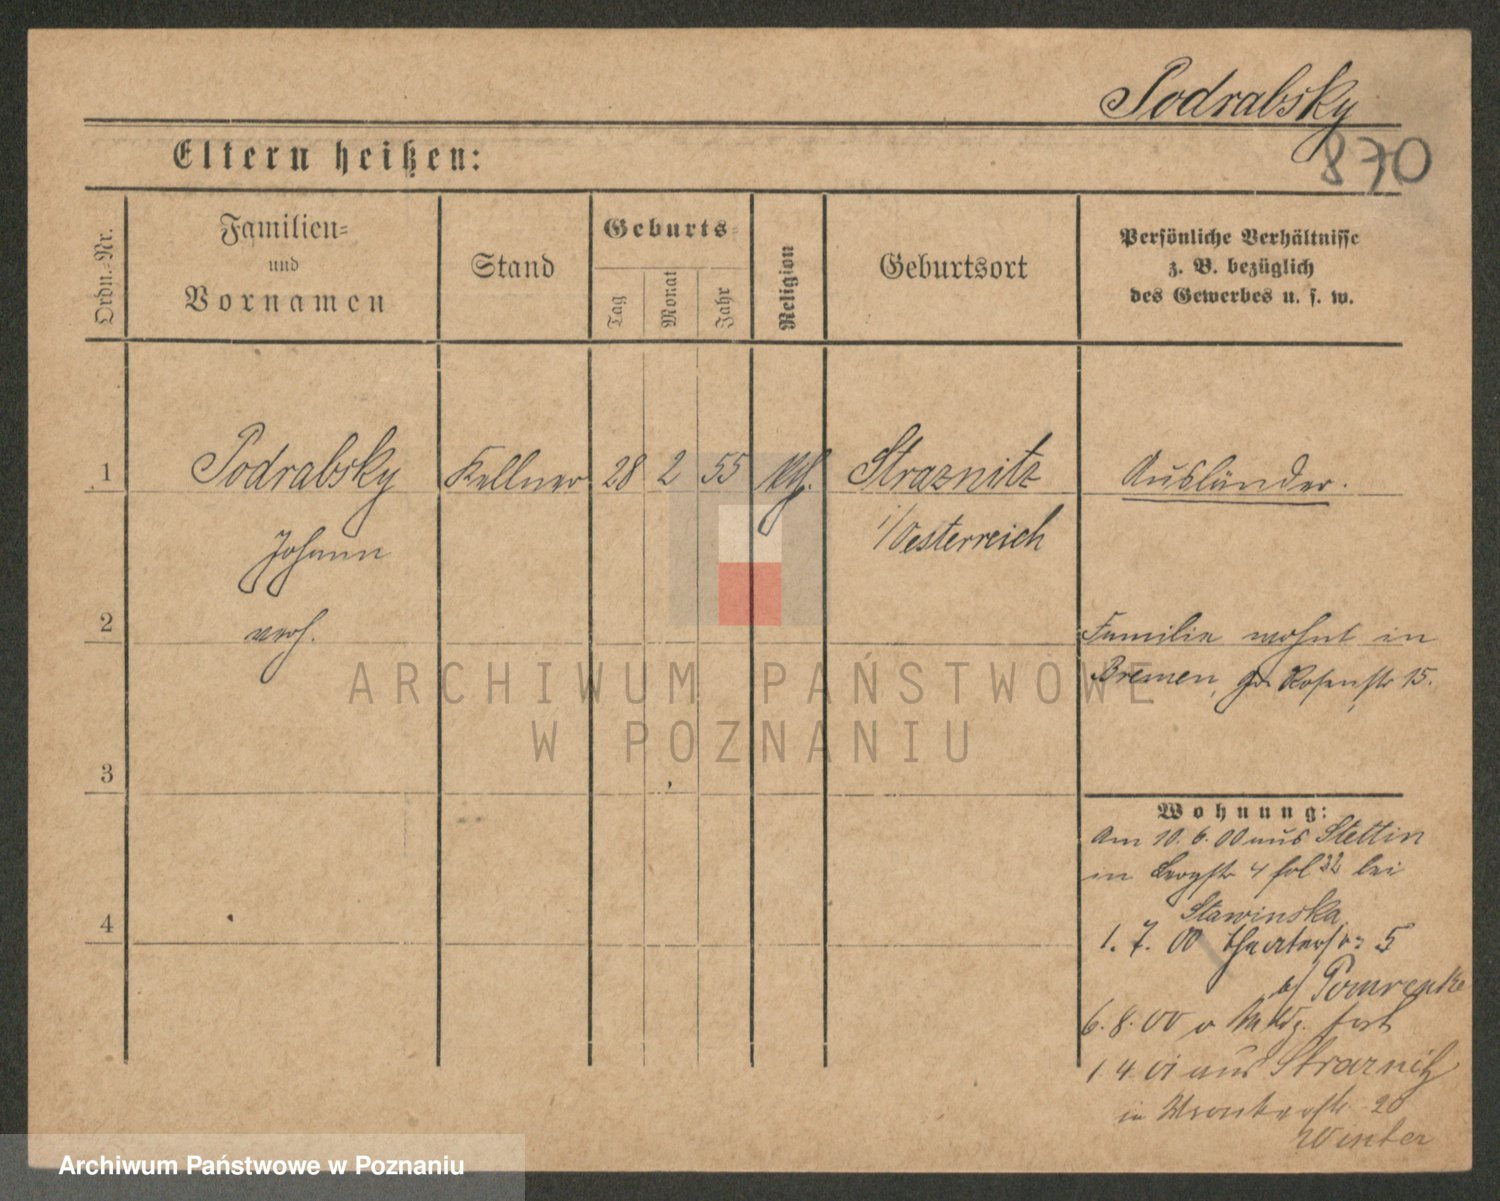 Podrabsky
870
Eltern heißen:
Ordn.-Nr.
Familien-
und
Vornamen
Stand
Geburts-
Tag
Monat
Jahr
Religion
Geburtsort
Persönliche Verhältnisse
z. B. bezüglich
des Gewerbes u. s. w.
1
Podrabsky
Kellner
28
2
55
Straznitz
Ausländer.
Johann
i/Oesterreich
2
verh.
Familie wohnt in
Bremen, Rosenstr 15.
ARCHIWUM PAŃSTWOWE
W POZNANIU
3
Wohnung:
Am 10. 6. 00 aus Stettin
in Bergstr 4 bei
Stawinska
4
1. 7. 00 Theaterstr 5
b/ Pomrenke
6. 8. 00 o fort
1 4 01 aus Straznitz
in 20
Winter
Archiwum Państwowe w Poznaniu